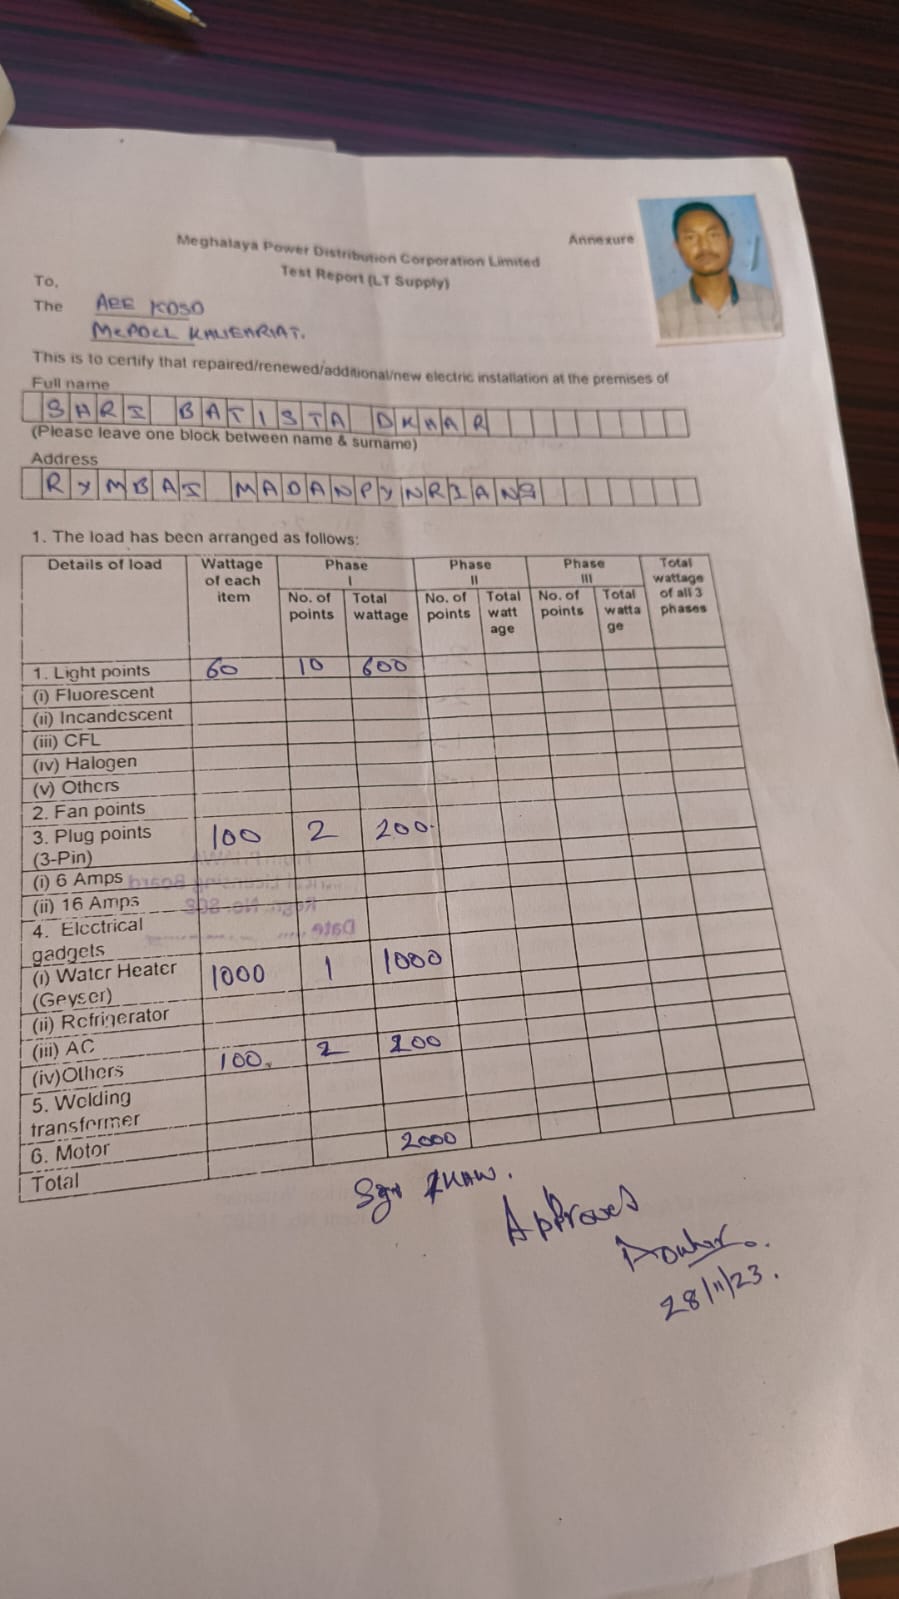 Annexure
Meghalaya Power Distribution Corporation Limited
Test Report (LT Supply)
To,
The AEE KDSD
MePDCL KHLIEHRIAT.
This is to certify that repaired/renewed/additional/new electric installation at the premises of
Full name
SHRI BATISTA DKHAR
(Please leave one block between name & surname)
Address
RYMBAI MADANPYNRIANG
1. The load has been arranged as follows:
Details of load Wattage of each item Phase I Phase II Phase III Total wattage of all 3 phases
No. of points Total wattage No. of points Total watt age No. of points Total watta ge
1. Light points 60 10 600
(i) Fluorescent
(ii) Incandescent
(iii) CFL
(iv) Halogen
(v) Others
2. Fan points
3. Plug points 100 2 200
(3-Pin)
(i) 6 Amps
(ii) 16 Amps
4. Electrical
gadgets
(i) Water Heater 1000 1 1000
(Geyser)
(ii) Refrigerator
(iii) AC
(iv) Others 100 2 200
5. Welding
transformer
6. Motor
Total 2000
Approved
28/11/23.